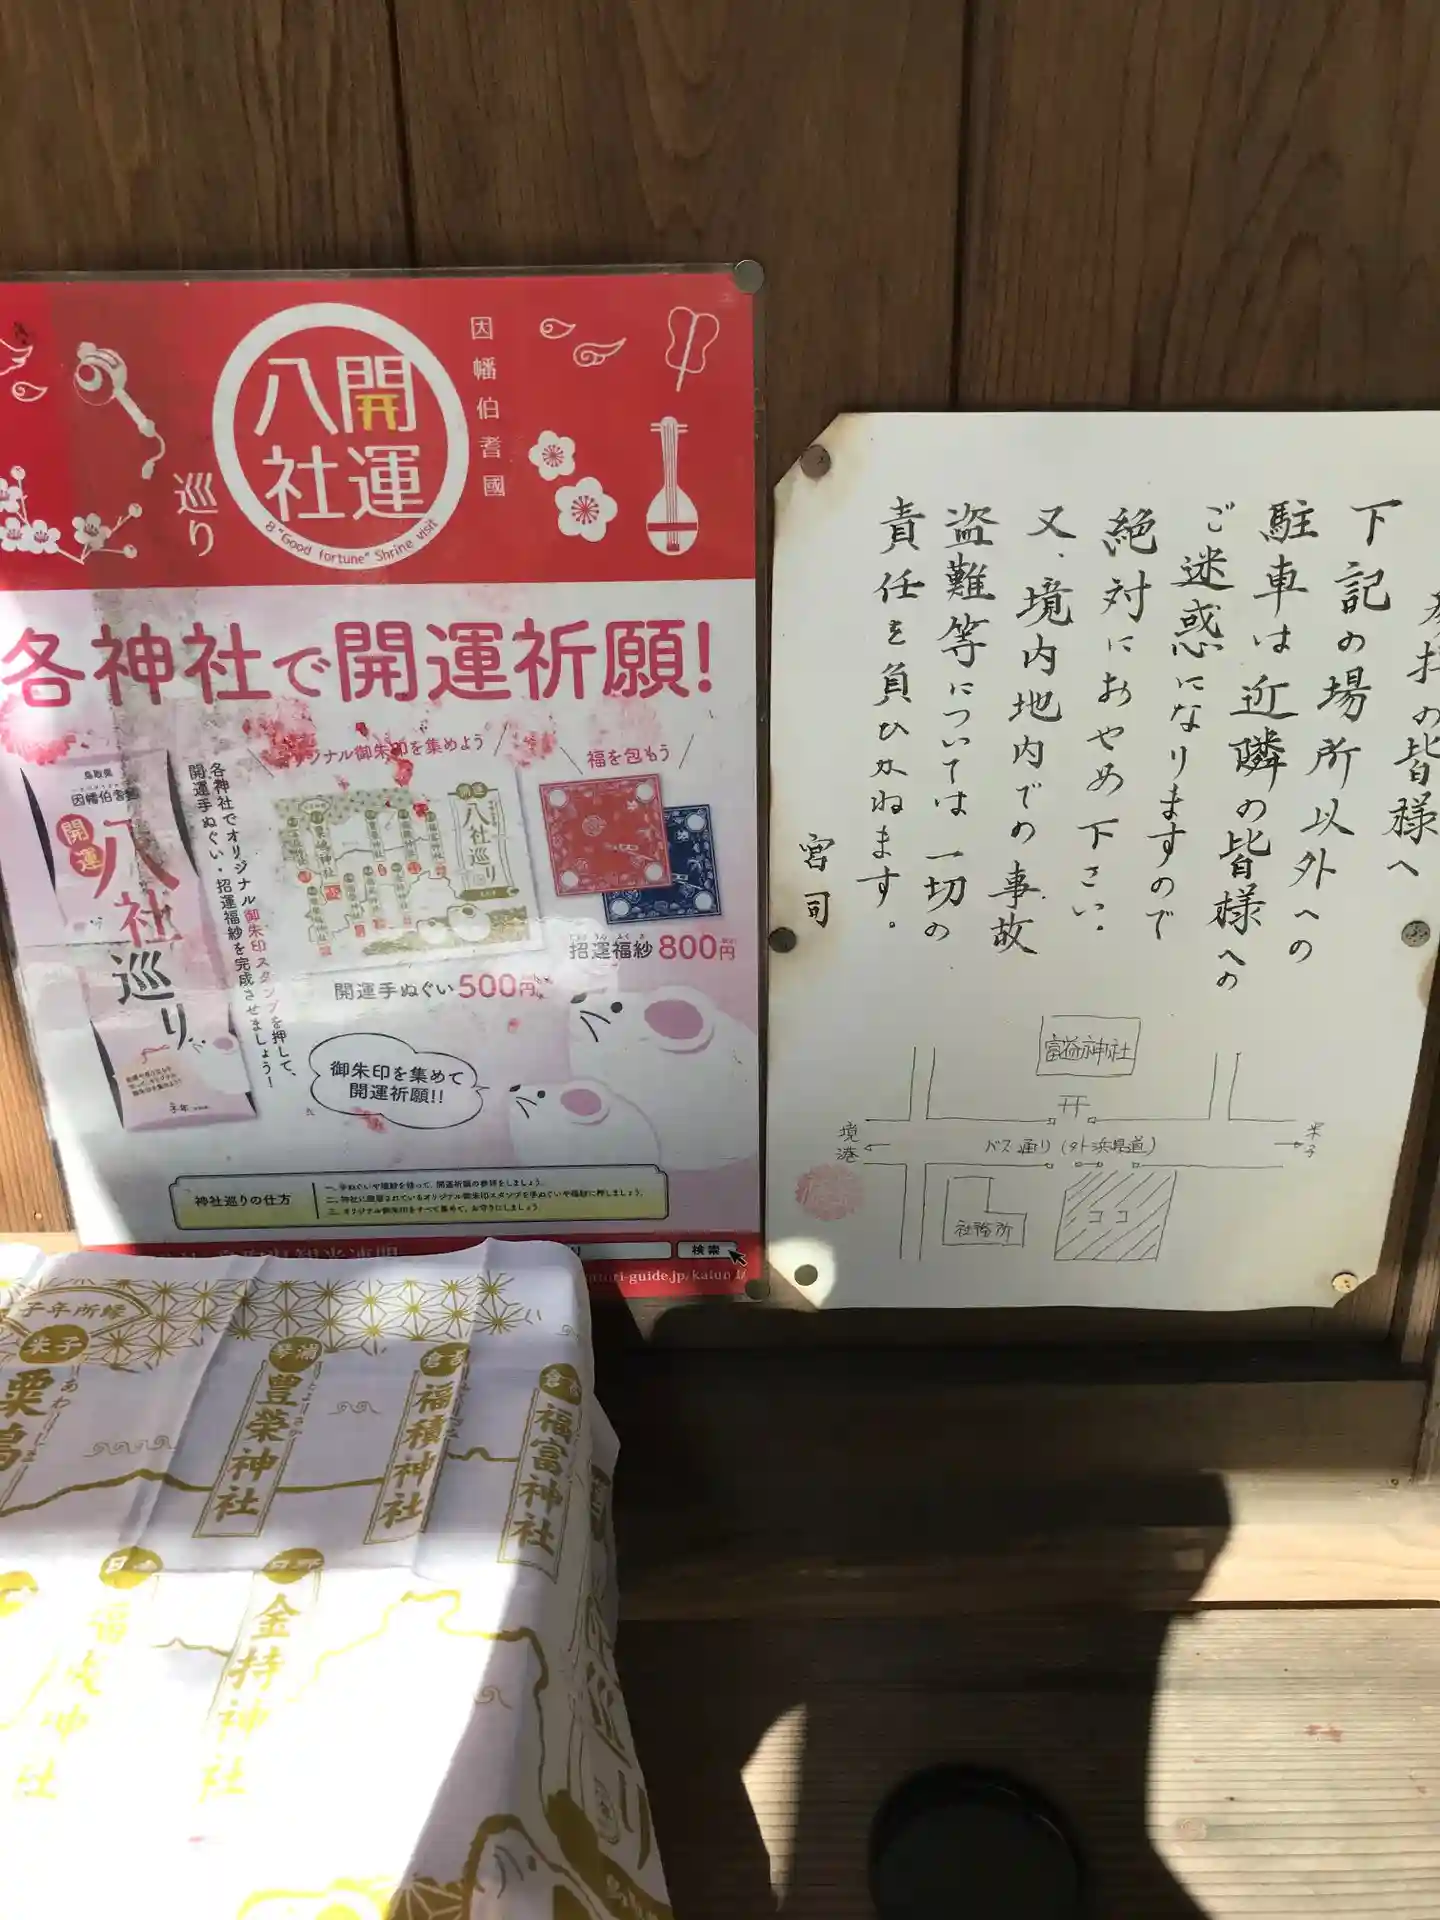 因幡伯耆國
開運
八社
巡り
8 "Good fortune" Shrine visit
各神社で開運祈願!
オリジナル御朱印を集めよう
福を包もう
鳥取県
因幡伯耆國
開運
八社巡り
子年
各神社でオリジナル御朱印スタンプを押して、
開運手ぬぐい・招運福紗を完成させましょう!
開運
八社巡り
招運福紗 800円
開運手ぬぐい 500円
御朱印を集めて
開運祈願!!
神社巡りの仕方
一、手ぬぐいや福紗を持って、開運祈願の参拝をしましょう。
二、神社に設置されているオリジナル御朱印スタンプを手ぬぐいや福紗に押しましょう。
三、オリジナル御朱印をすべて集めて、お守りにしましょう。
検索
ttori-guide.jp/kaiun
子年所縁
米子
粟嶋
あわしま
琴浦
豊榮神社
倉吉
福積神社
倉吉
福富神社
日野
金持神社
参拝の皆様へ
下記の場所以外への
駐車は近隣の皆様への
ご迷惑になりますので
絶対におやめ下さい。
又、境内地内での事故
盗難等については一切の
責任を負ひかねます。
宮司
富益神社
境港
バス通り(外浜県道)
米子
社務所
ココ